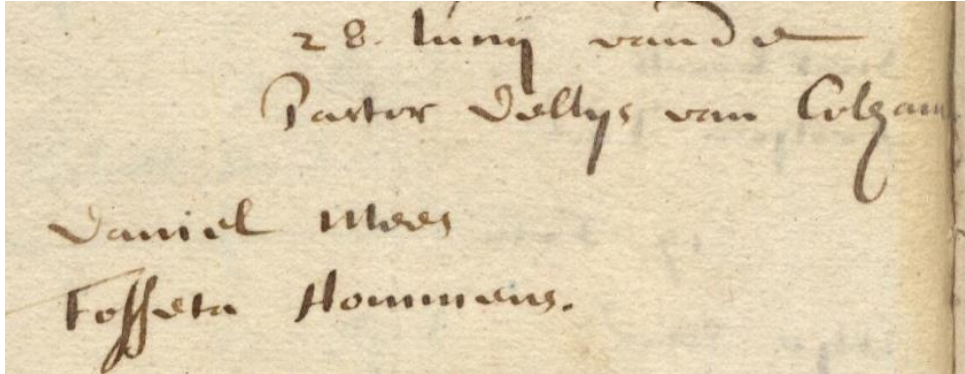 28. Iunij vande
Pastor Dellijs van Colgam
Daniel Mees
Josseta Hommens.